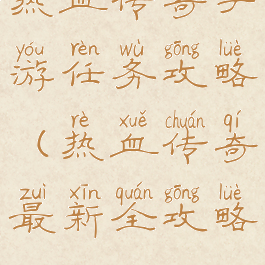 热血传奇手
yóu rèn wù gōng lüè
游任务攻略
rè xuě chuán qí
（热血传奇
zuì xīn quán gōng lüè
最新全攻略